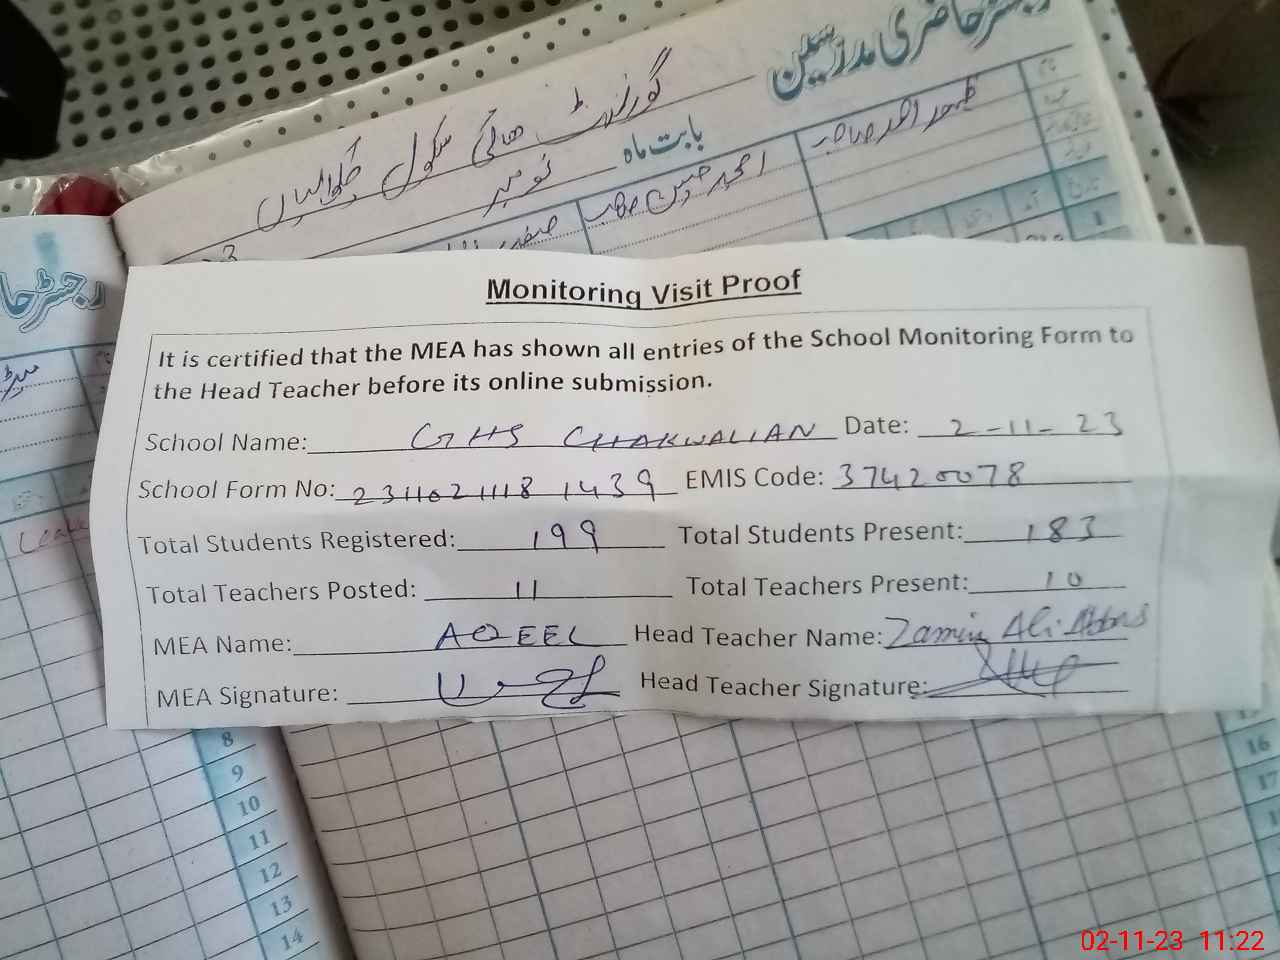 رجسٹر حاضری مدرسین
گورنمنٹ ہائی سکول چکوالیاں
بابت ماہ نومبر
امجد حسین صاحب
ظہور احمد صاحب
Monitoring Visit Proof
It is certified that the MEA has shown all entries of the School Monitoring Form to
the Head Teacher before its online submission.
School Name: GHS CHAKWALIAN Date: 2-11-23
School Form No: 2311021118 1439 EMIS Code: 37420078
Total Students Registered: 199 Total Students Present: 183
Total Teachers Posted: 11 Total Teachers Present: 10
MEA Name: AQEEL Head Teacher Name: Zamin Ali Abbas
MEA Signature: Head Teacher Signature:
8
9
10
11
12
13
14
16
17
02-11-23 11:22